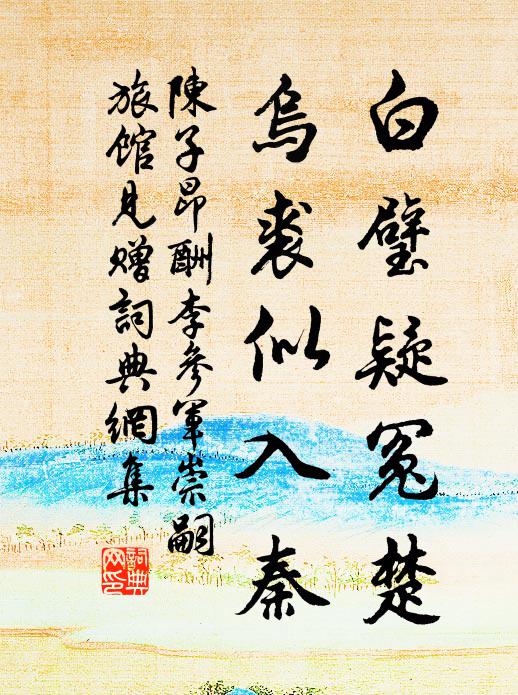 白璧疑冤楚
烏裘似入秦
陳子昂酬李參軍崇嗣
旅館見贈詞典網集
詞典网印